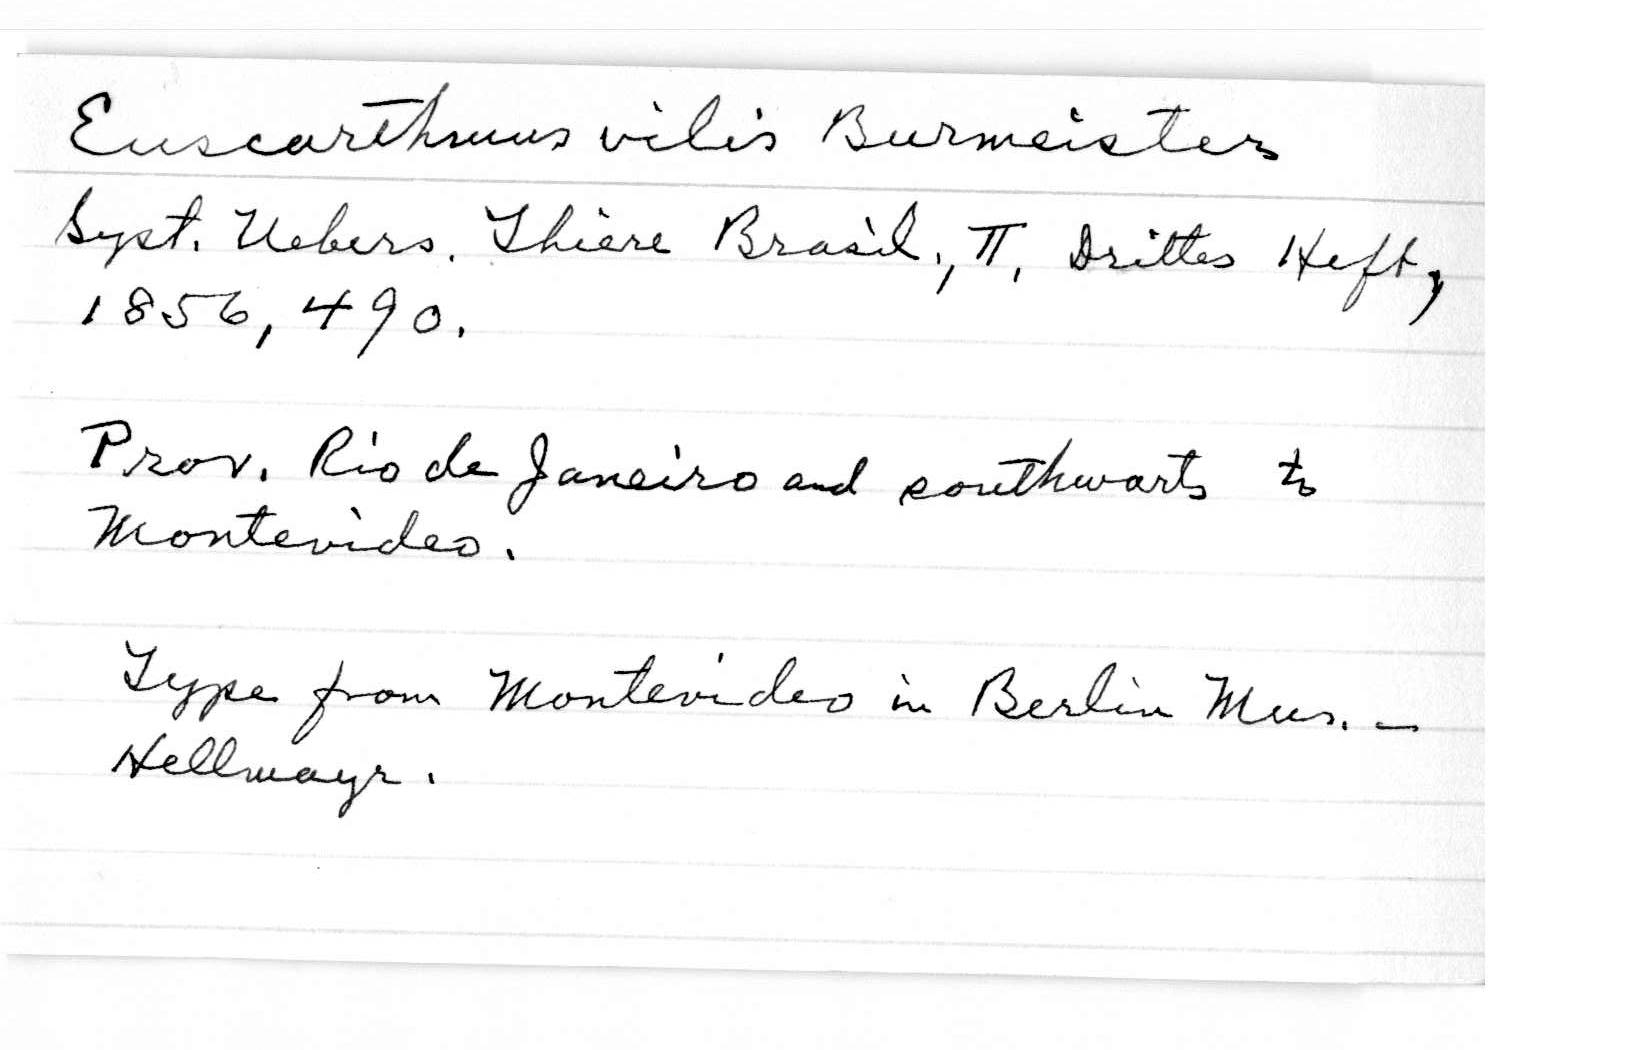 Euscarthmus vilis Burmeister
Syst. Uebers. Thiere Brasil., II, Drittes Heft,
1856, 490.
Prov. Rio de Janeiro and southwarts to
Montevideo.
Type from Montevideo in Berlin Mus. —
Hellmayr.